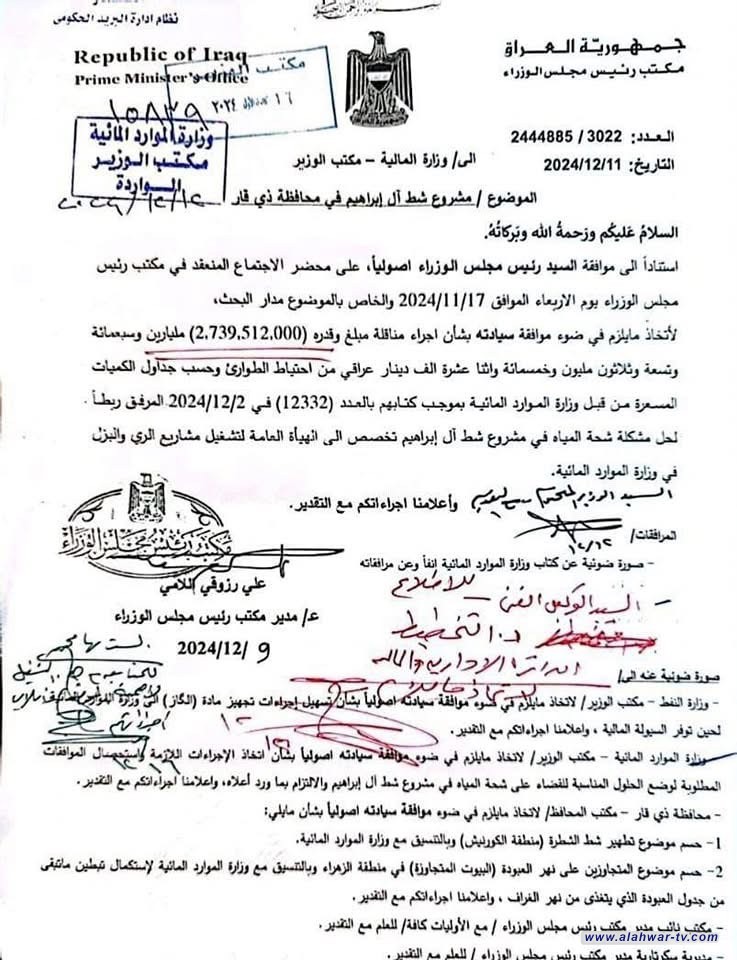 نظام ادارة البريد الحكومي
Republic of Iraq
Prime Minister's Office
جمهوريّة العـراق
مكتب رئيس مجلس الوزراء
مكتب
١٦
٢٠٢٤
١٥٨٣٩
وزارة الموارد المائية
مكتب الوزير
الـواردة
العـدد: 3022/ 2444885
التاريخ: 2024/12/11
الى/ وزارة المالية – مكتب الوزير
الموضوع / مشروع شط آل إبراهيم في محافظة ذي قار
السلامُ عَليكُم ورَحمةُ الله وبَركاتُهُ.
استناداً الى موافقة السيد رئيس مجلس الوزراء اصولياً، على محضر الاجتماع المنعقد في مكتب رئيس
مجلس الوزراء يوم الاربعاء الموافق 2024/11/17 والخاص بالموضوع مدار البحث،
لأتخاذ مايلزم في ضوء موافقة سيادته بشأن اجراء مناقلة مبلغ وقدره (2,739,512,000) مليارين وسبعمائة
وتسعة وثلاثون مليون وخمسمائة واثنا عشرة الف دينار عراقي من احتياط الطوارئ وحسب جداول الكميات
المسعرة من قبل وزارة الموارد المائية بموجب كتابهم بالعدد (12332) في 2024/12/2 المرفق ربطاً،
لحل مشكلة شحة المياه في مشروع شط آل إبراهيم تخصص الى الهيأة العامة لتشغيل مشاريع الري والبزل
في وزارة الموارد المائية.
وأعلامنا اجراءاتكم مع التقدير.
المرافقات/
– صورة ضوئية عن كتاب وزارة الموارد المائية انفاً وعن مرافقاته
مكتب رئيس مجلس الوزراء
علي رزوقي اللامي
ع/ مدير مكتب رئيس مجلس الوزراء
2024/12/ 9
السيد الوكيل الفني
للاطلاع
د. التخطيط
صورة ضوئية عنه الى/
– وزارة النفط – مكتب الوزير/ لاتخاذ مايلزم في ضوء موافقة سيادته اصولياً بشأن تسهيل إجراءات تجهيز مادة (الگاز) الى وزارة الموارد المائية
لحين توفر السيولة المالية ، واعلامنا اجراءاتكم مع التقدير.
– وزارة الموارد المائية – مكتب الوزير/ لاتخاذ مايلزم في ضوء موافقة سيادته اصولياً بشأن اتخاذ الإجراءات اللازمة واستحصال الموافقات
المطلوبة لوضع الحلول المناسبة للقضاء على شحة المياه في مشروع شط آل إبراهيم والالتزام بما ورد أعلاه، واعلامنا اجراءاتكم مع التقدير.
– محافظة ذي قار – مكتب المحافظ/ لاتخاذ مايلزم في ضوء موافقة سيادته اصولياً بشأن مايلي:
1– حسم موضوع تطهير شط الشطرة (منطقة الكورنيش) وبالتنسيق مع وزارة الموارد المائية.
2– حسم موضوع المتجاوزين على نهر العبودة (البيوت المتجاوزة) في منطقة الزهراء وبالتنسيق مع وزارة الموارد المائية لإستكمال تبطين ماتبقى
من جدول العبودة الذي يتغذى من نهر الغراف ، واعلامنا اجراءاتكم مع التقدير.
– مكتب نائب مدير مكتب رئيس مجلس الوزراء / مع الأوليات كافة/ للعلم مع التقدير.
– مديرية سكرتارية مدير مكتب رئيس مجلس الوزراء / للعلم مع التقدير.
www.alahwar-tv.com